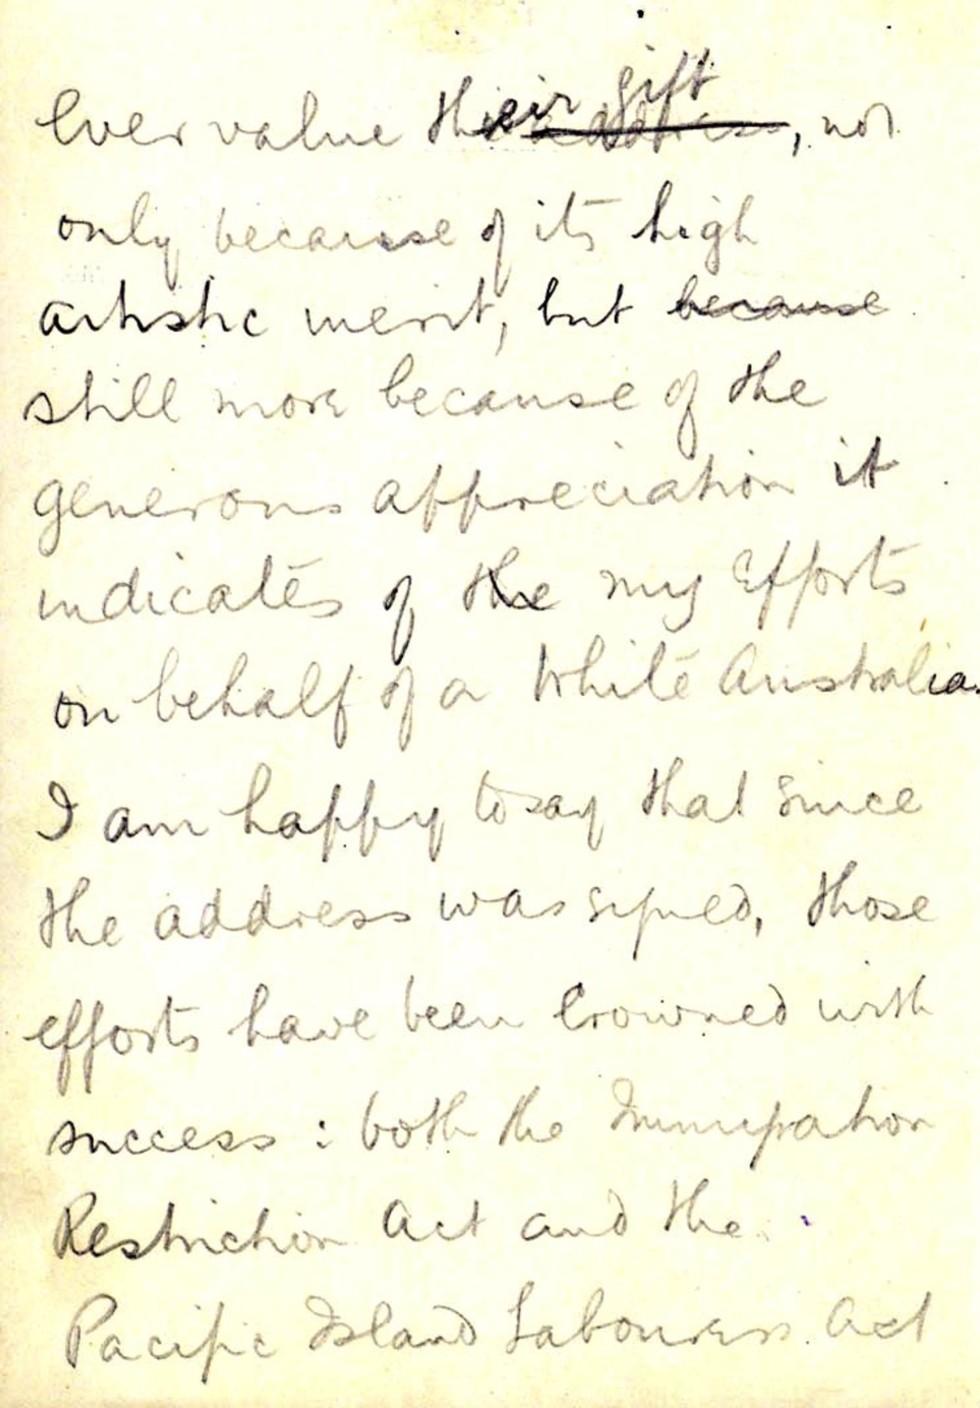 ever value their gift address, not
only because of its high
artistic merit, but because
still more because of the
generous appreciation it
indicates of the my Efforts
on behalf of a White Australia.
I am happy to say that since
the address was signed, those
efforts have been Crowned with
success : both the Immigration
Restriction Act and the
Pacific Island Labourers Act